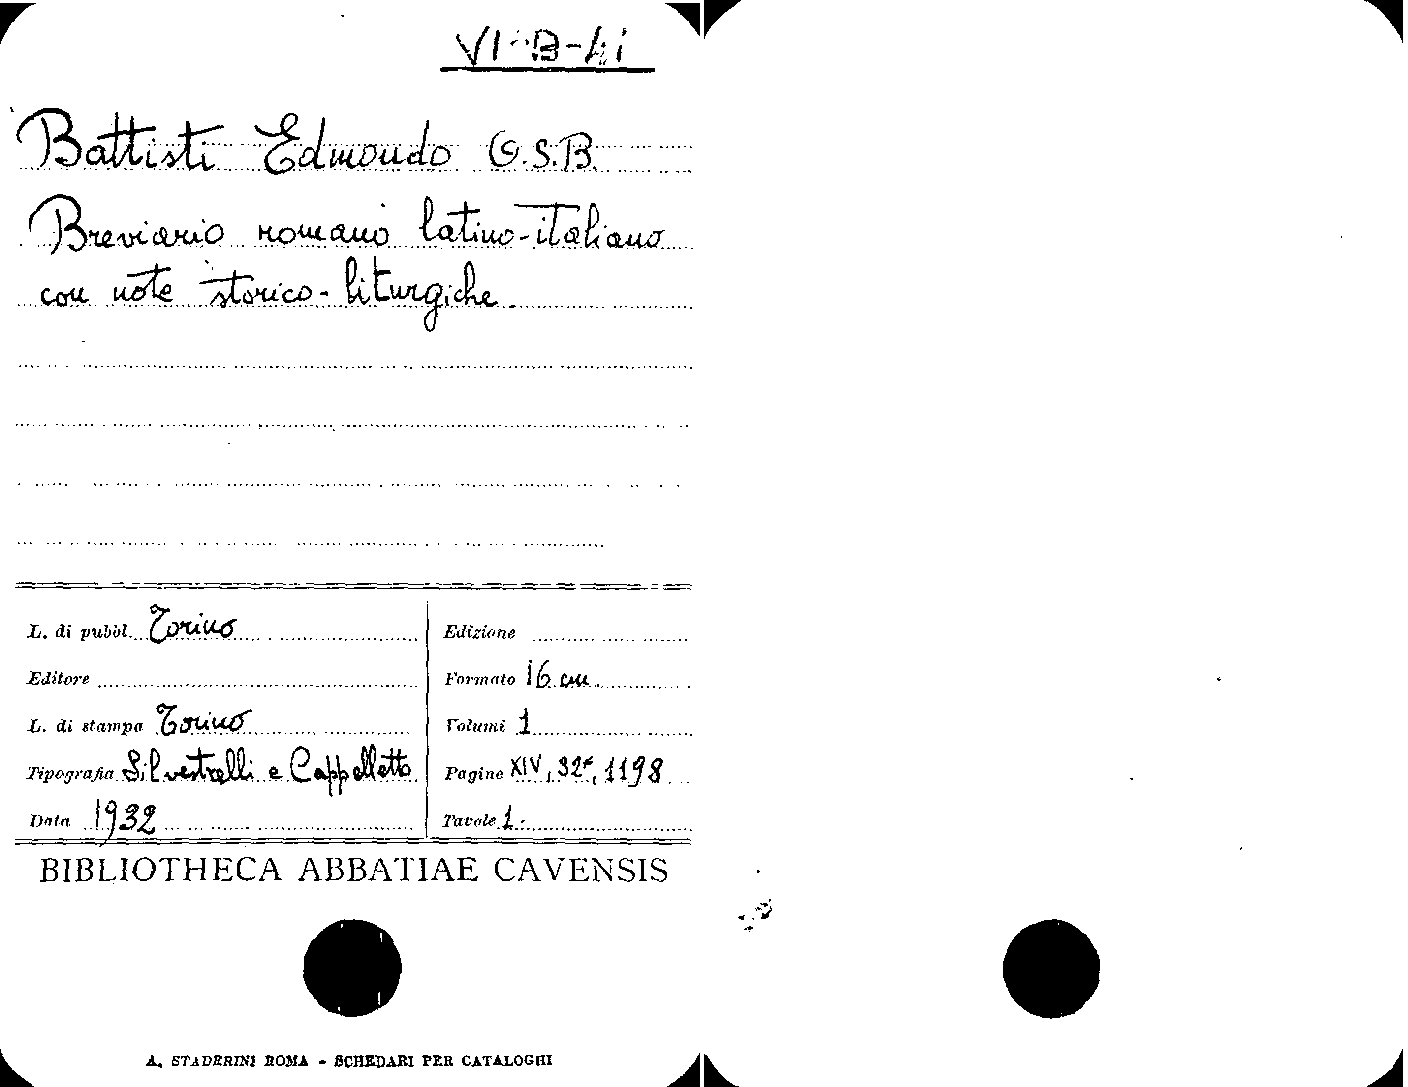 VI-B-41
Battisti Edmondo O.S.B.
Breviario romano latino-italiano
con note storico-liturgiche.
L. di pubbl. Torino
Editore
L. di stampa Torino
Tipografia Silvestrelli e Cappelletto
Data 1932
Edizione
Formato 16 cm.
Volumi 1
Pagine XIV, 32*, 1198
Tavole 1.
BIBLIOTHECA ABBATIAE CAVENSIS
A. STADERINI ROMA - SCHEDARI PER CATALOGHI